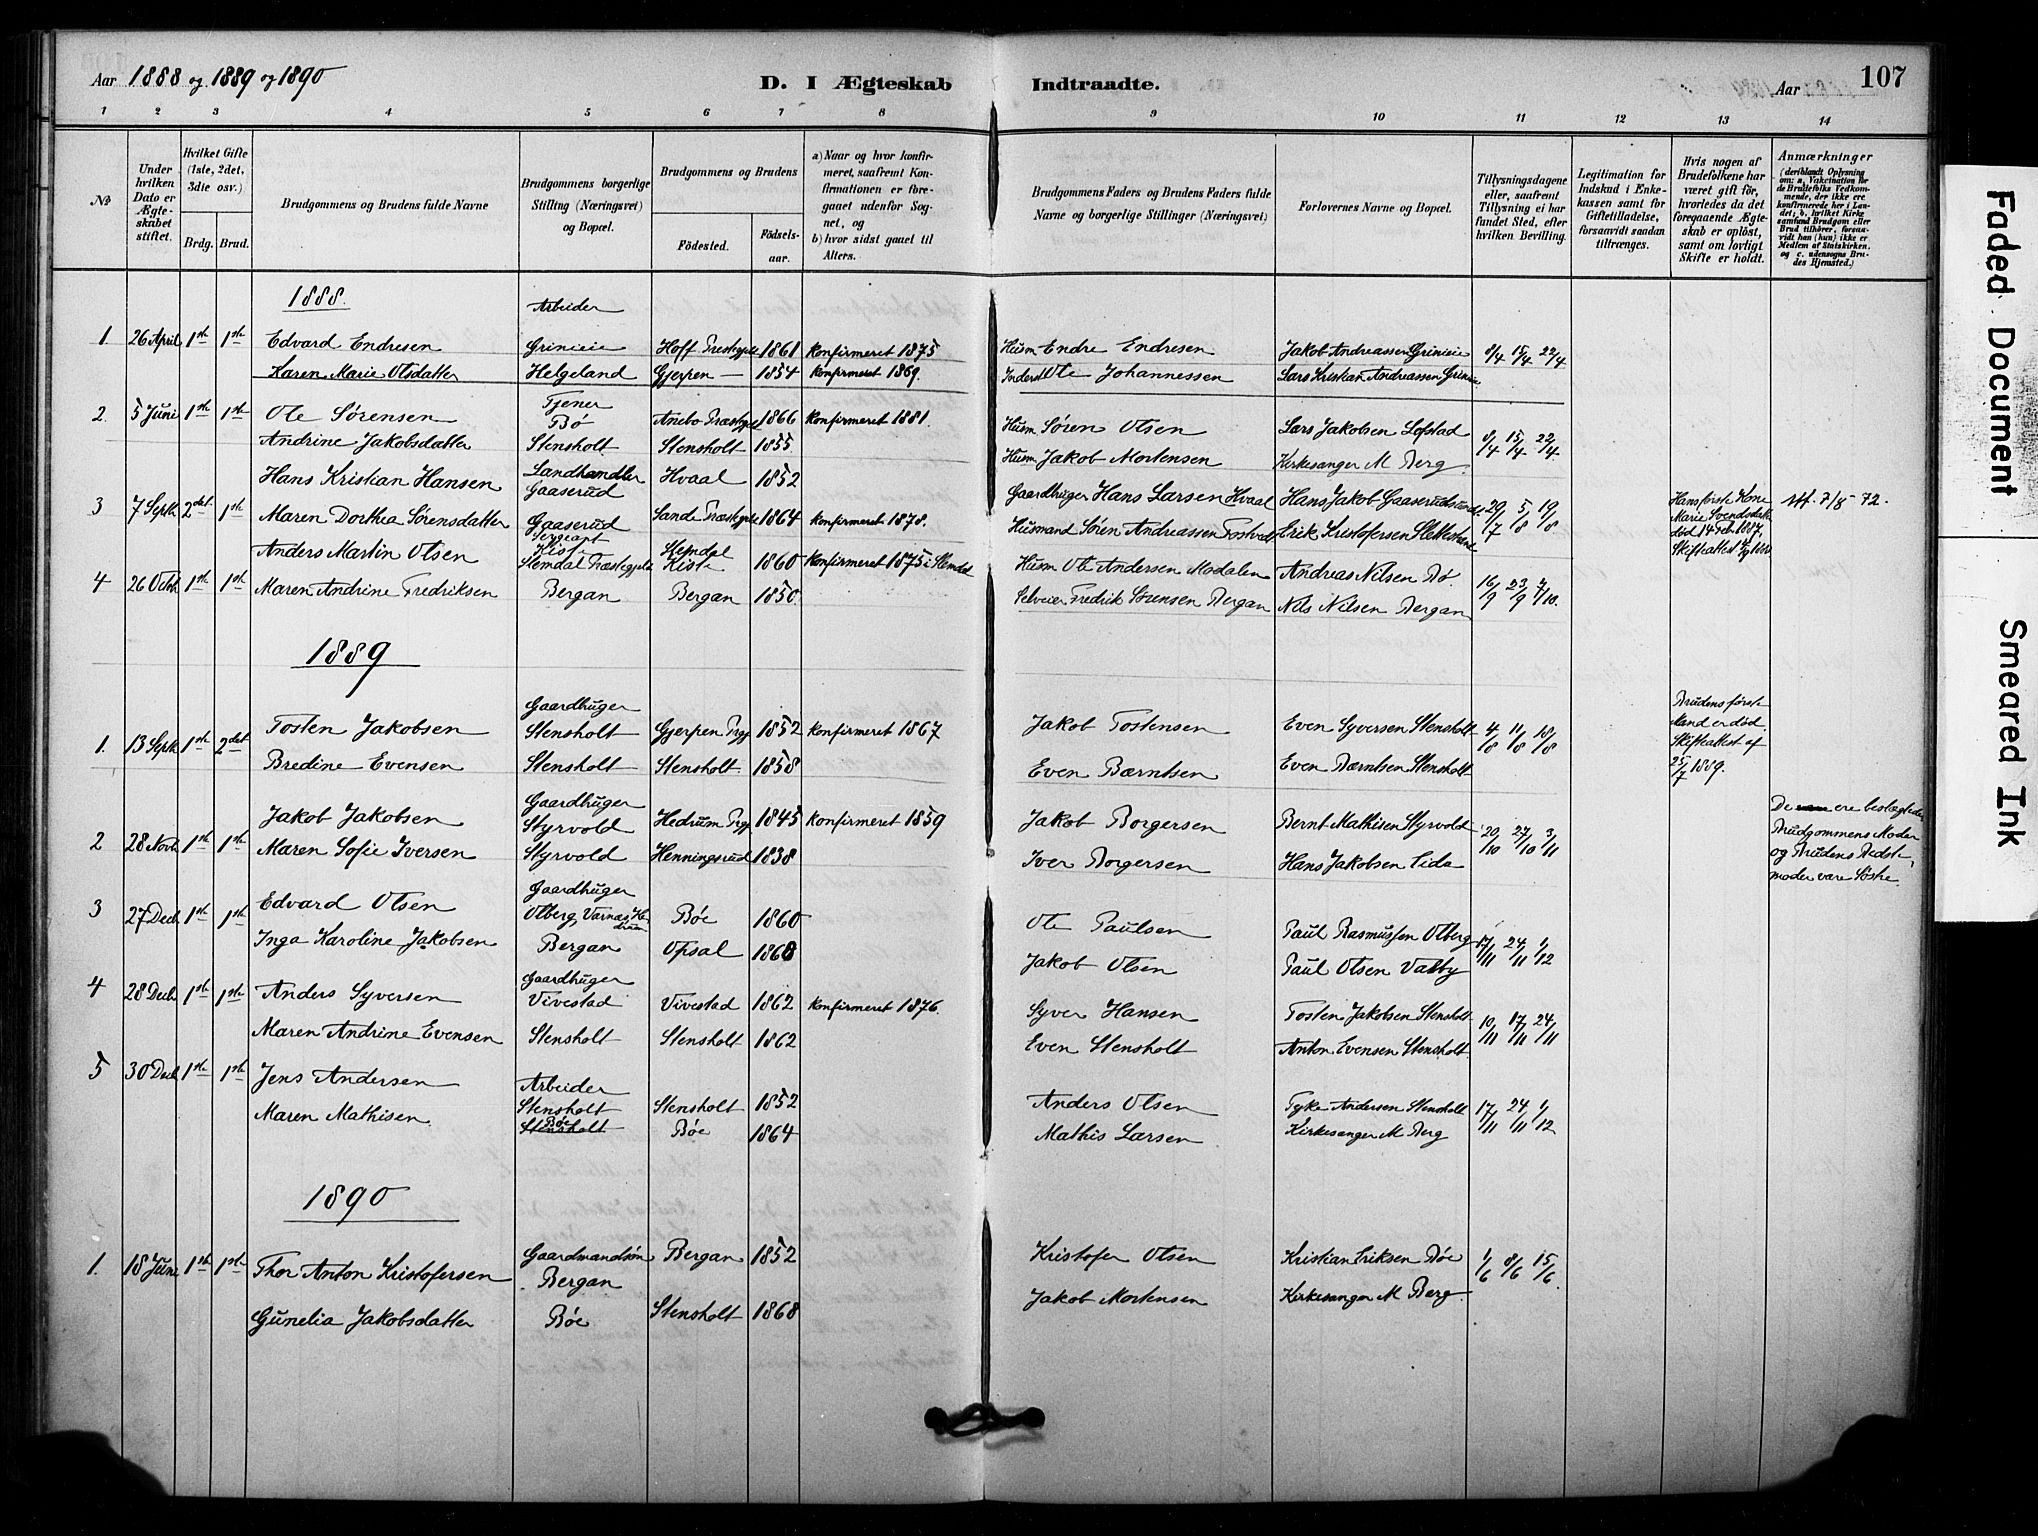 Aar 1888 og 1889 og 1890
D. I Ægteskab Indtraadte.
Aar
107
1 2 3 4 5 6 7 8 9 10 11 12 13 14
No
Under hvilken Dato er Ægteskabet stiftet.
Hvilket Gifte (1ste, 2det, 3die osv.)
Brdg. Brud.
Brudgommens og Brudens fulde Navne
Brudgommens borgerlige Stilling (Næringsvei) og Bopæl.
Brudgommens og Brudens
Fødested.
Fødselsaar.
a) Naar og hvor konfirmeret, saafremt Konfirmationen er foregaaet udenfor Sognet, og
b) hvor sidst gaaet til Alters.
Brudgommens Faders og Brudens Faders fulde Navne og borgerlige Stillinger (Næringsvei)
Forlovernes Navne og Bopæl.
Tillysningsdagene eller, saafremt Tillysning ei har fundet Sted, efter hvilken Bevilling.
Legitimation for Indskud i Enkekassen samt for Giftetilladelse, forsaavidt saadan tiltrænges.
Hvis nogen af Brudefolkene har været gift før, hvorledes da det foregaaende Ægteskab er opløst, samt om lovligt Skifte er holdt.
Anmærkninger
(deriblandt Oplysning om: a. Vakcination for de Brudefolks Vedkommende, der ikke ere konfirmerede her i Landet; b. hvilket Kirkesamfund Brudgom eller Brud tilhører, forsaavidt han (hun) ikke er Medlem af Statskirken. og c. udensogns Brudes Hjemsted.)
1888.
Arbeider
1 26 April 1ste 1ste Edvard Endresen Grinieie Hoff Prestegjeld 1861 Konfirmeret 1875 Husm Endre Endresen Jakob Andreassen Grinieie 8/4 15/4 22/4
Karen Marie Olsdatter Helgeland Gjerpen — 1854 Konfirmeret 1869. Inderst Ole Johannessen Lars Kristian Andreassen Grinieie
Tjener
2. 5 Juni 1ste 1ste Ole Sørensen Bø Anebo Præstegjeld 1866 Konfirmeret 1881. Husm Søren Olsen Lars Jakobsen Lofstad 8/4 15/4 22/4
Andrine Jakobsdatter Stensholt Stensholt 1855 Husm Jakob Mortensen Kirkesanger M Berg
Hans Kristian Hansen Landhandler Gaaserud Hvaal 1852 Gaardbruger Hans Larsen Hvaal Hans Jakob
3 7 Septb 2det 1ste Maren Dorthea Sørensdatter Gaaserud Sande Præstegjeld 1864 Konfirmeret 1878. Husmand Søren Andreassen Erik Kristofersen 29/7 5/8 19/8 Hans første Kone Marie Svendsdatter død 14 Feb. 1887, Skifteattest Att. 7/8 72.
Sergeant
Anders Martin Olsen Kiste Slemdal Præstegjeld Slemdal Kiste 1860 Konfirmeret 1875 i Slemdal Husm Ole Andersen Modalen Andreas Nilsen Bø
4 26 Octob 1ste 1ste Maren Andrine Fredriksen Bergan Bergan 1850. Selveier Fredrik Sørensen Bergan Nils Nilsen Bergan 16/9 23/9 7/10.
1889
Gaardbruger
1. 13 Septb 1ste 2det Tosten Jakobsen Stensholt Gjerpen Prgj 1852 Konfirmeret 1867 Jakob Tostensen Even Syversen Stensholt 4/8 11/8 18/8 Brudens første Mand er død. Skifteattest af 25/7 1889.
Bredine Evensen Stensholt Stensholt 1858 Even Bærntsen Even Bærntsen Stensholt
Gaardbruger
Jakob Jakobsen Styrvold Hedrum Prgj 1845 Konfirmeret 1859 Jakob Borgersen Bernt Mathisen Styrvold
2 28 Novb 1ste 1ste Maren Sofie Iversen Styrvold Henningsrud 1838 Iver Borgersen Hans Jakobsen Lida 20/10 27/10 3/11 De ere beslægtede Brudgommens Moder og Brudens Bedstemoder vare Søstre.
Gaardbruger
3 27 Decb 1ste 1ste Edvard Olsen Olberg, Varnæs Hedrum Bøe 1860 Ole Paulsen Paul Rasmussen Olberg 17/11 24/11 1/12
Inga Karoline Jakobsen Bergan Opsal 1868 Jakob Olsen Paul Olsen Valby
Gaardbruger
4 28 Decb 1ste 1ste Anders Syversen Vivestad Vivestad 1862 Konfirmeret 1876. Syver Hansen Tosten Jakobsen Stensholt 10/11 17/11 24/11
Maren Andrine Evensen Stensholt Stensholt 1862 Even Stensholt Anton Evensen Stensholt
5 30 Decb 1ste 1ste Jens Andersen Arbeider Stensholt Stensholt 1852 Anders Olsen Tyke Andersen Stensholt 17/11 24/11 1/12
Maren Mathisen. Bøe Stensholt Bøe 1864 Mathis Larsen Kirkesanger M Berg
1890
1. 18 Juni 1ste 1ste Thor Anton Kristofersen Gaardmandsøn Bergan Bergan 1852 Kristofer Olsen Kristian Eriksen Bøe 1/6 8/6 15/6
Gunelia Jakobsdatter Bøe Stensholt 1868 Jakob Mortensen Kirkesanger M Berg
Faded Document
Smeared Ink